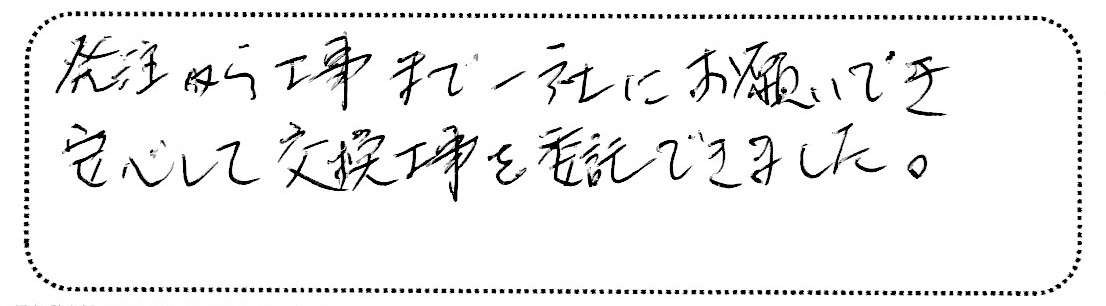 発注から工事まで一社にお願いでき
安心して交換工事を委託できました。